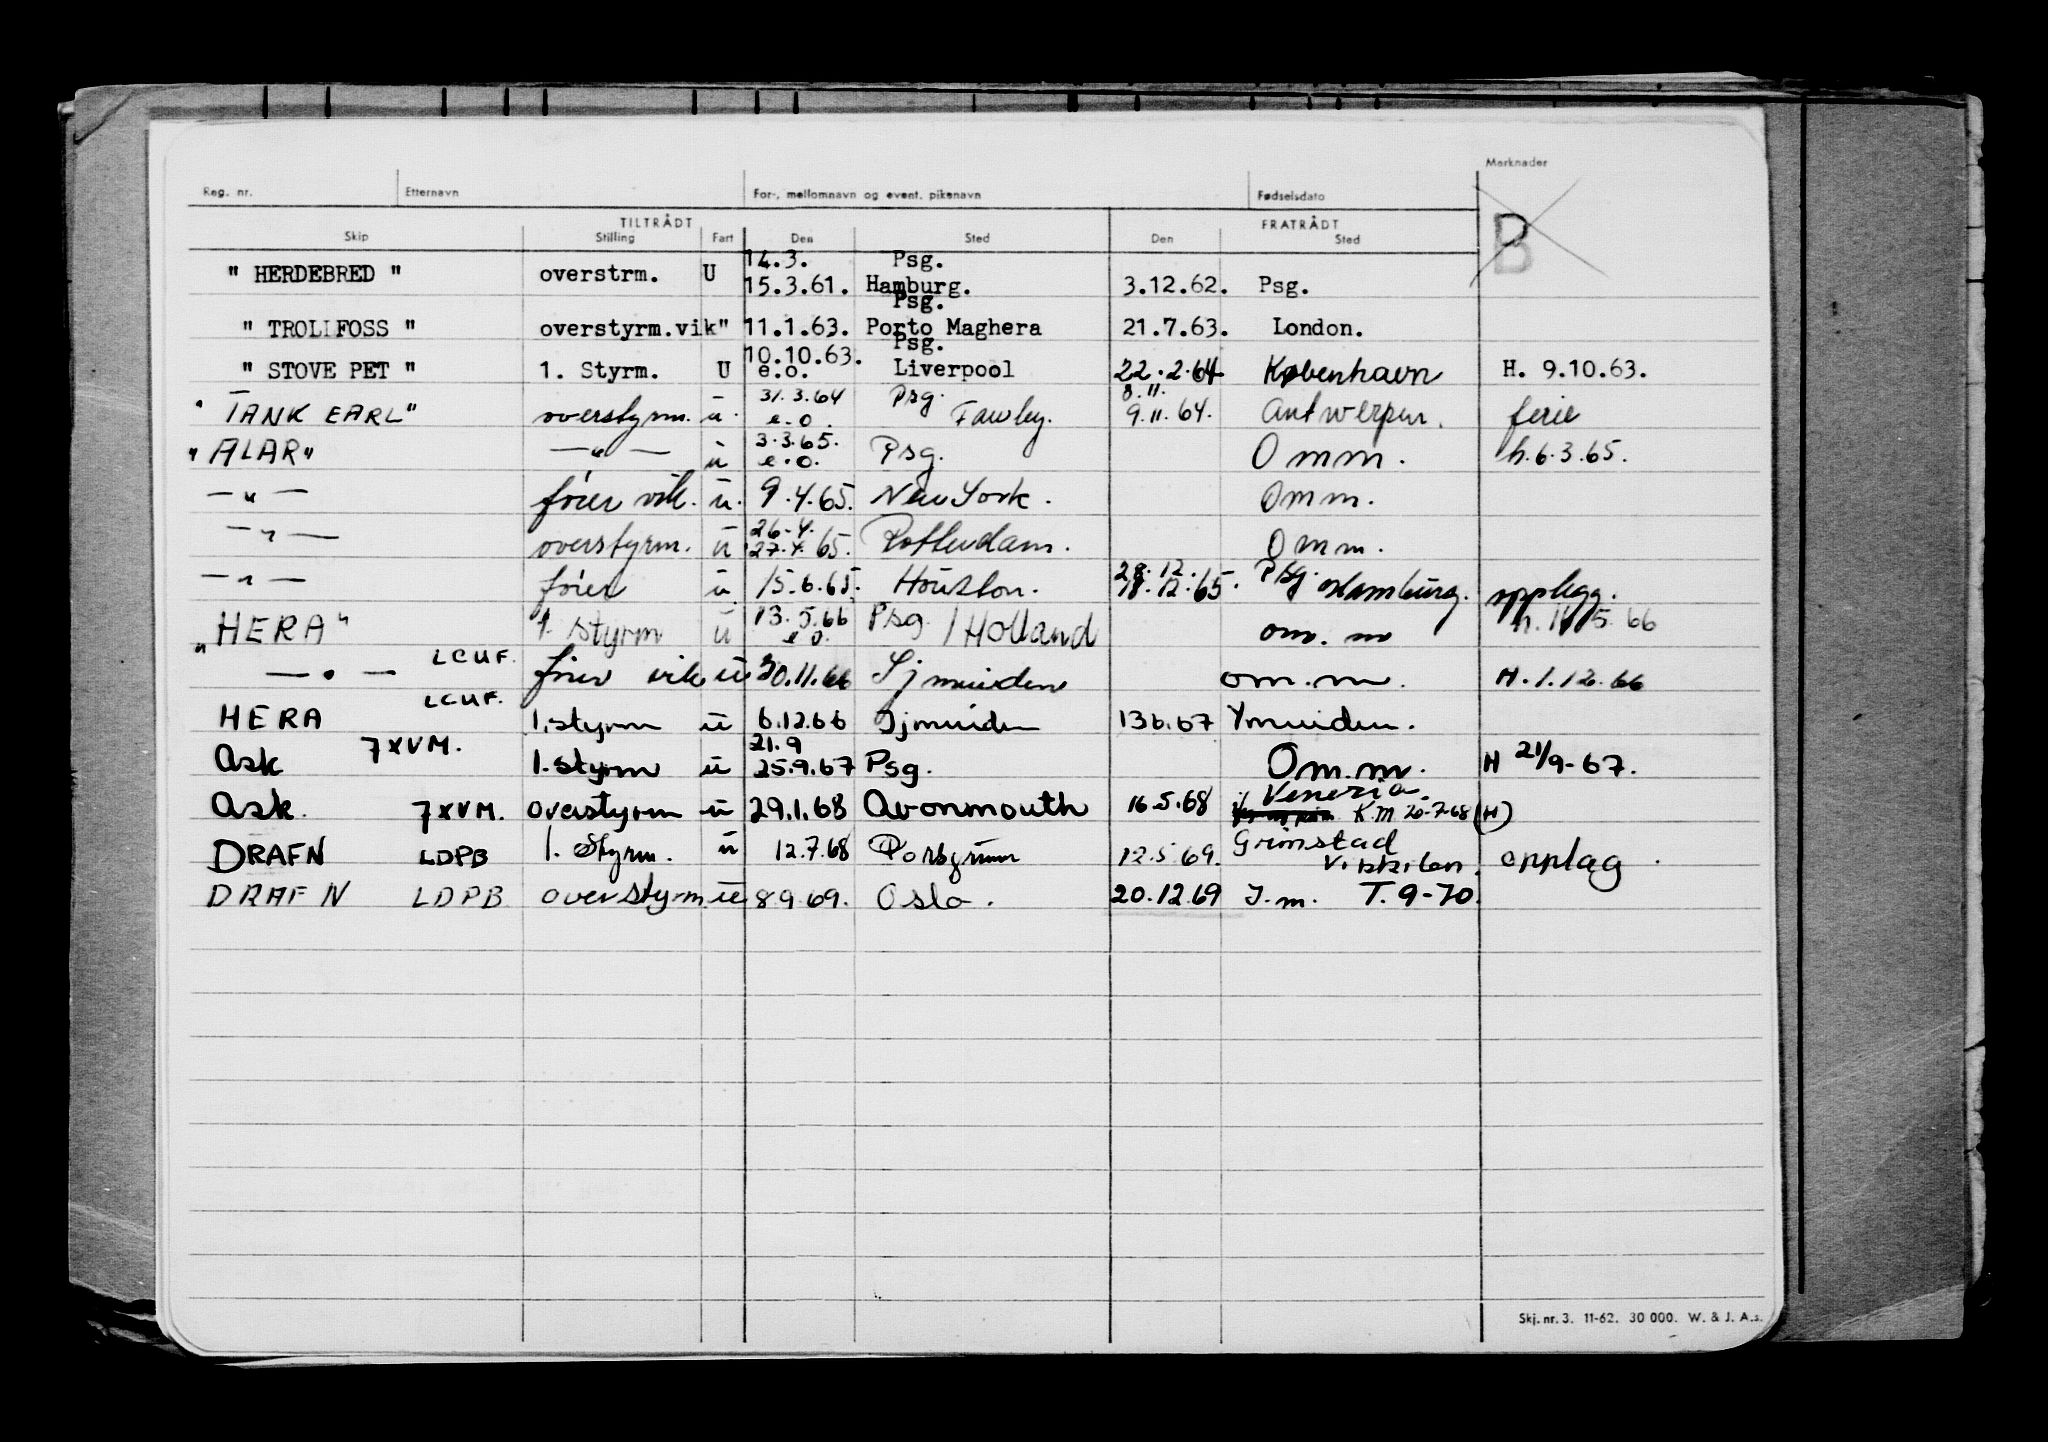 Merknader
Reg. nr. Etternavn For-, mellomnavn og event. pikenavn Fødselsdato
B
TILTRÅDT FRATRÅDT
Skip Stilling Fart Den Sted Den Sted
14.3. Psg.
" HERDEBRED " overstrm. U 15.3.61. Hamburg. 3.12.62. Psg.
Psg.
" TROLLFOSS " overstyrm.vik" 11.1.63. Porto Maghera 21.7.63. London.
10.10.63. Psg.
" STOVE PET " 1. Styrm. U e.o. Liverpool 22.2.64 København H. 9.10.63.
31.3.64 Psg. 8.11.
" TANK EARL" overstyrm. u. e.o. Fawley. 9.11.64. Antwerpen. ferie
3.3.65.
"ALAR" — " — u e.o. Psg. Omm. h.6.3.65.
— " — fører vik. u. 9.4.65. New York. Omm.
26.4.
— " — overstyrm. u 27.4.65. Rotterdam. Omm.
28.12. Psg.
— " — fører u. 15.6.65. Houston. 18.12.65. Hamburg. opplegg.
13.5.66
"HERA" 1. styrm u e.o. Psg / Holland om. m h. 11/5.66
— " — LCUF. fører vik u 30.11.66 Ijmuiden om.m. H.1.12.66
HERA LCUF. 1.styrm u 6.12.66 Ijmuiden 13.6.67 Ymuiden.
21.9
Ask 7XVM. 1.styrm u 25.9.67 Psg. Om.m. H 21/9-67.
Venezia
Ask. 7XVM. overstyrm u 29.1.68 Avonmouth 16.5.68 K.M 20-7-68 (H)
Grimstad
DRAFN LDPB 1. Styrm. u 12.7.68 Porsgrunn 12.5.69. v. bkkilen. opplag.
DRAFN LDPB overstyrm. u 8.9.69. Oslo. 20.12.69 I.m. T.9-70.
Skj. nr. 3. 11-62. 30 000. W. & J. A.s.